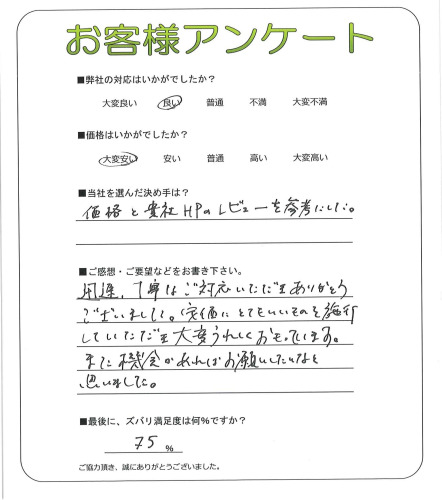 お客様アンケート
■弊社の対応はいかがでしたか？
大変良い 良い 普通 不満 大変不満
■価格はいかがでしたか？
大変安い 安い 普通 高い 大変高い
■当社を選んだ決め手は？
価格と貴社HPのレビューを参考にした。
■ご感想・ご要望などをお書き下さい。
丁寧なご対応いただきありがとう
ございました。安価にとてもいいものを施行
していただき大変うれしくおもっています。
また機会があればお願いしたいなと
思いました。
■最後に、ズバリ満足度は何％ですか？
75 %
ご協力頂き、誠にありがとうございました。